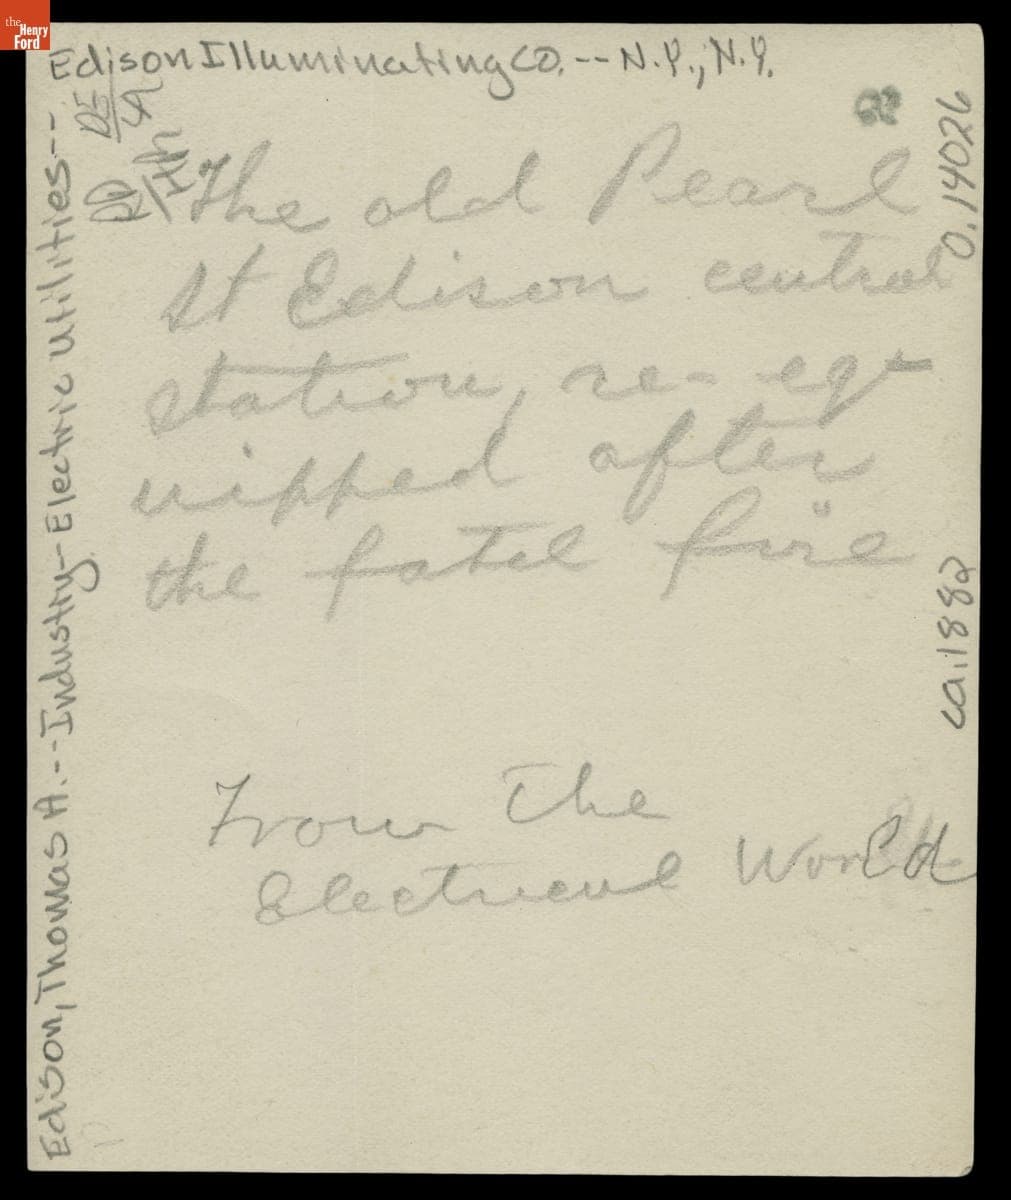 the
Henry
Ford
Edison, Thomas A.--Industry-Electric utilities--
Edison Illuminating Co.--N.Y., N.Y.
0.14026
The old Pearl
St Edison central
station, re-eq-
uipped after
the fatal fire
ca.1882
From The
Electrical World